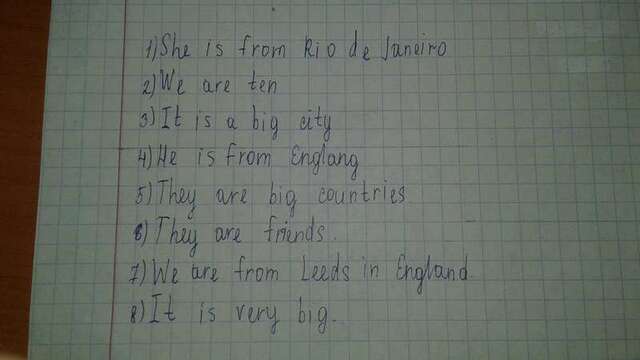 1) She is from Rio de Janeiro
2) We are ten
3) It is a big city
4) He is from Englang
5) They are big countries
6) They are friends
7) We are from Leeds in England.
8) It is very big.